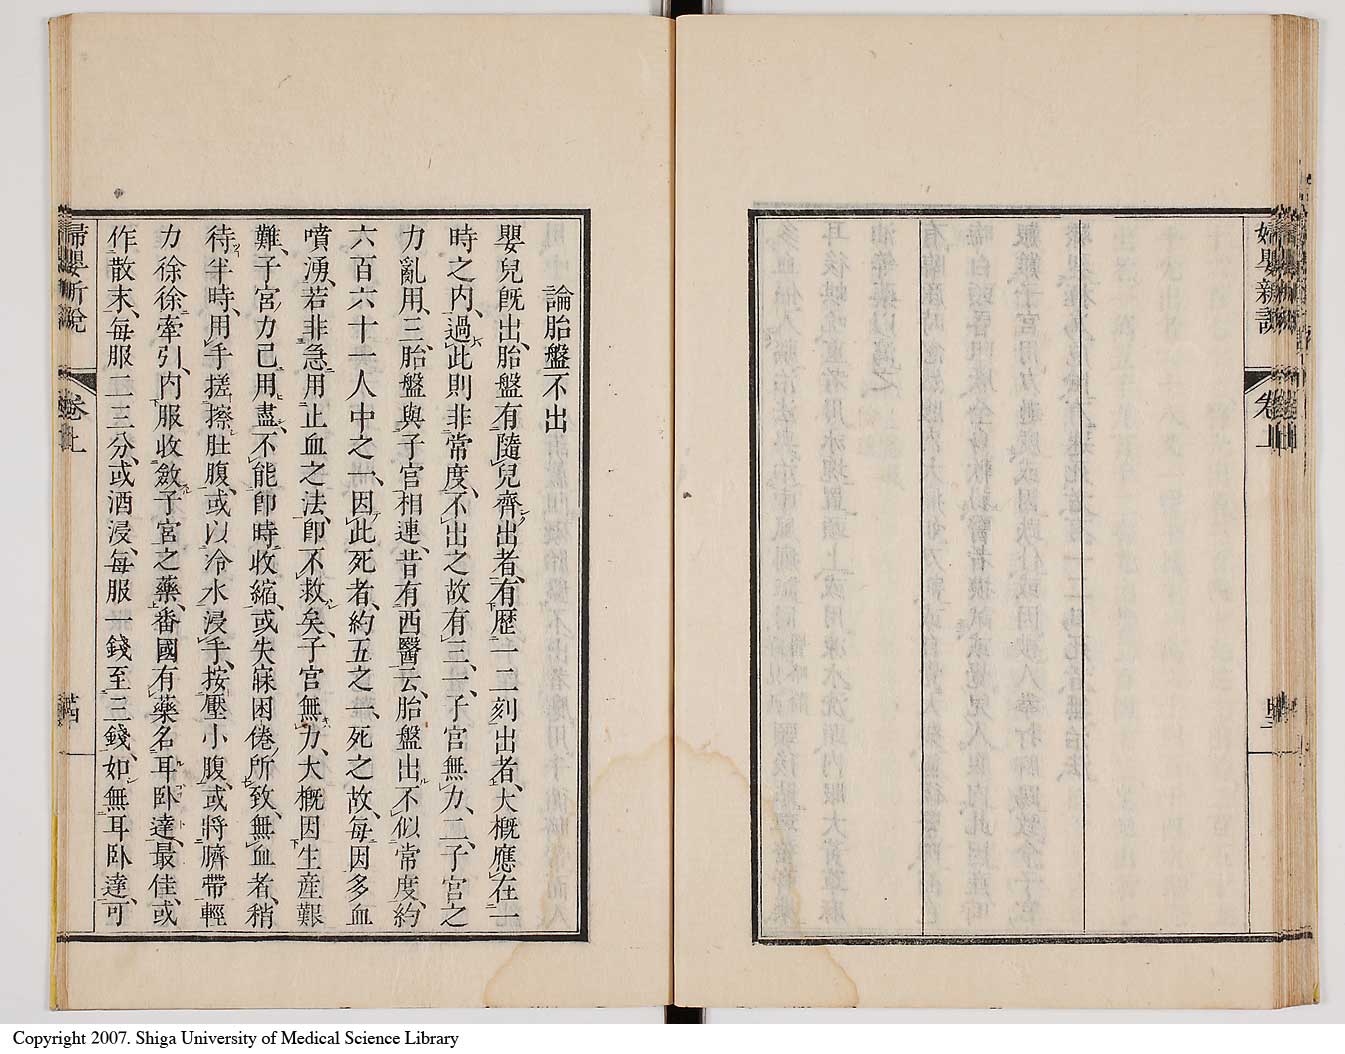 婦嬰新說
卷上
論胎盤不出
嬰兒既出、胎盤有隨兒齊出者、有歷一二刻出者、大概應在一
時之内、過此則非常度、不出之故有三、一、子宮無力、二、子宮之
力亂用、三、胎盤與子宮相連、昔有西醫云、胎盤出不似常度、約
六百六十一人中之一、因此死者、約五之一、死之故、每因多血
噴湧、若非急用止血之法、卽不救矣、子宮無力、大概因生産艱
難、子宮力已用盡、不能卽時收縮、或失寐困倦所致、無血者、稍
待半時、用手搓擦肚腹、或以冷水浸手、按壓小腹、或將臍帶輕
力徐徐牽引、内服收斂子宮之藥、番國有藥名耳卧達、最佳、或
作散末、每服二三分、或酒浸、每服一錢至三錢、如無耳卧達、可
婦嬰新說
卷上
Copyright 2007. Shiga University of Medical Science Library